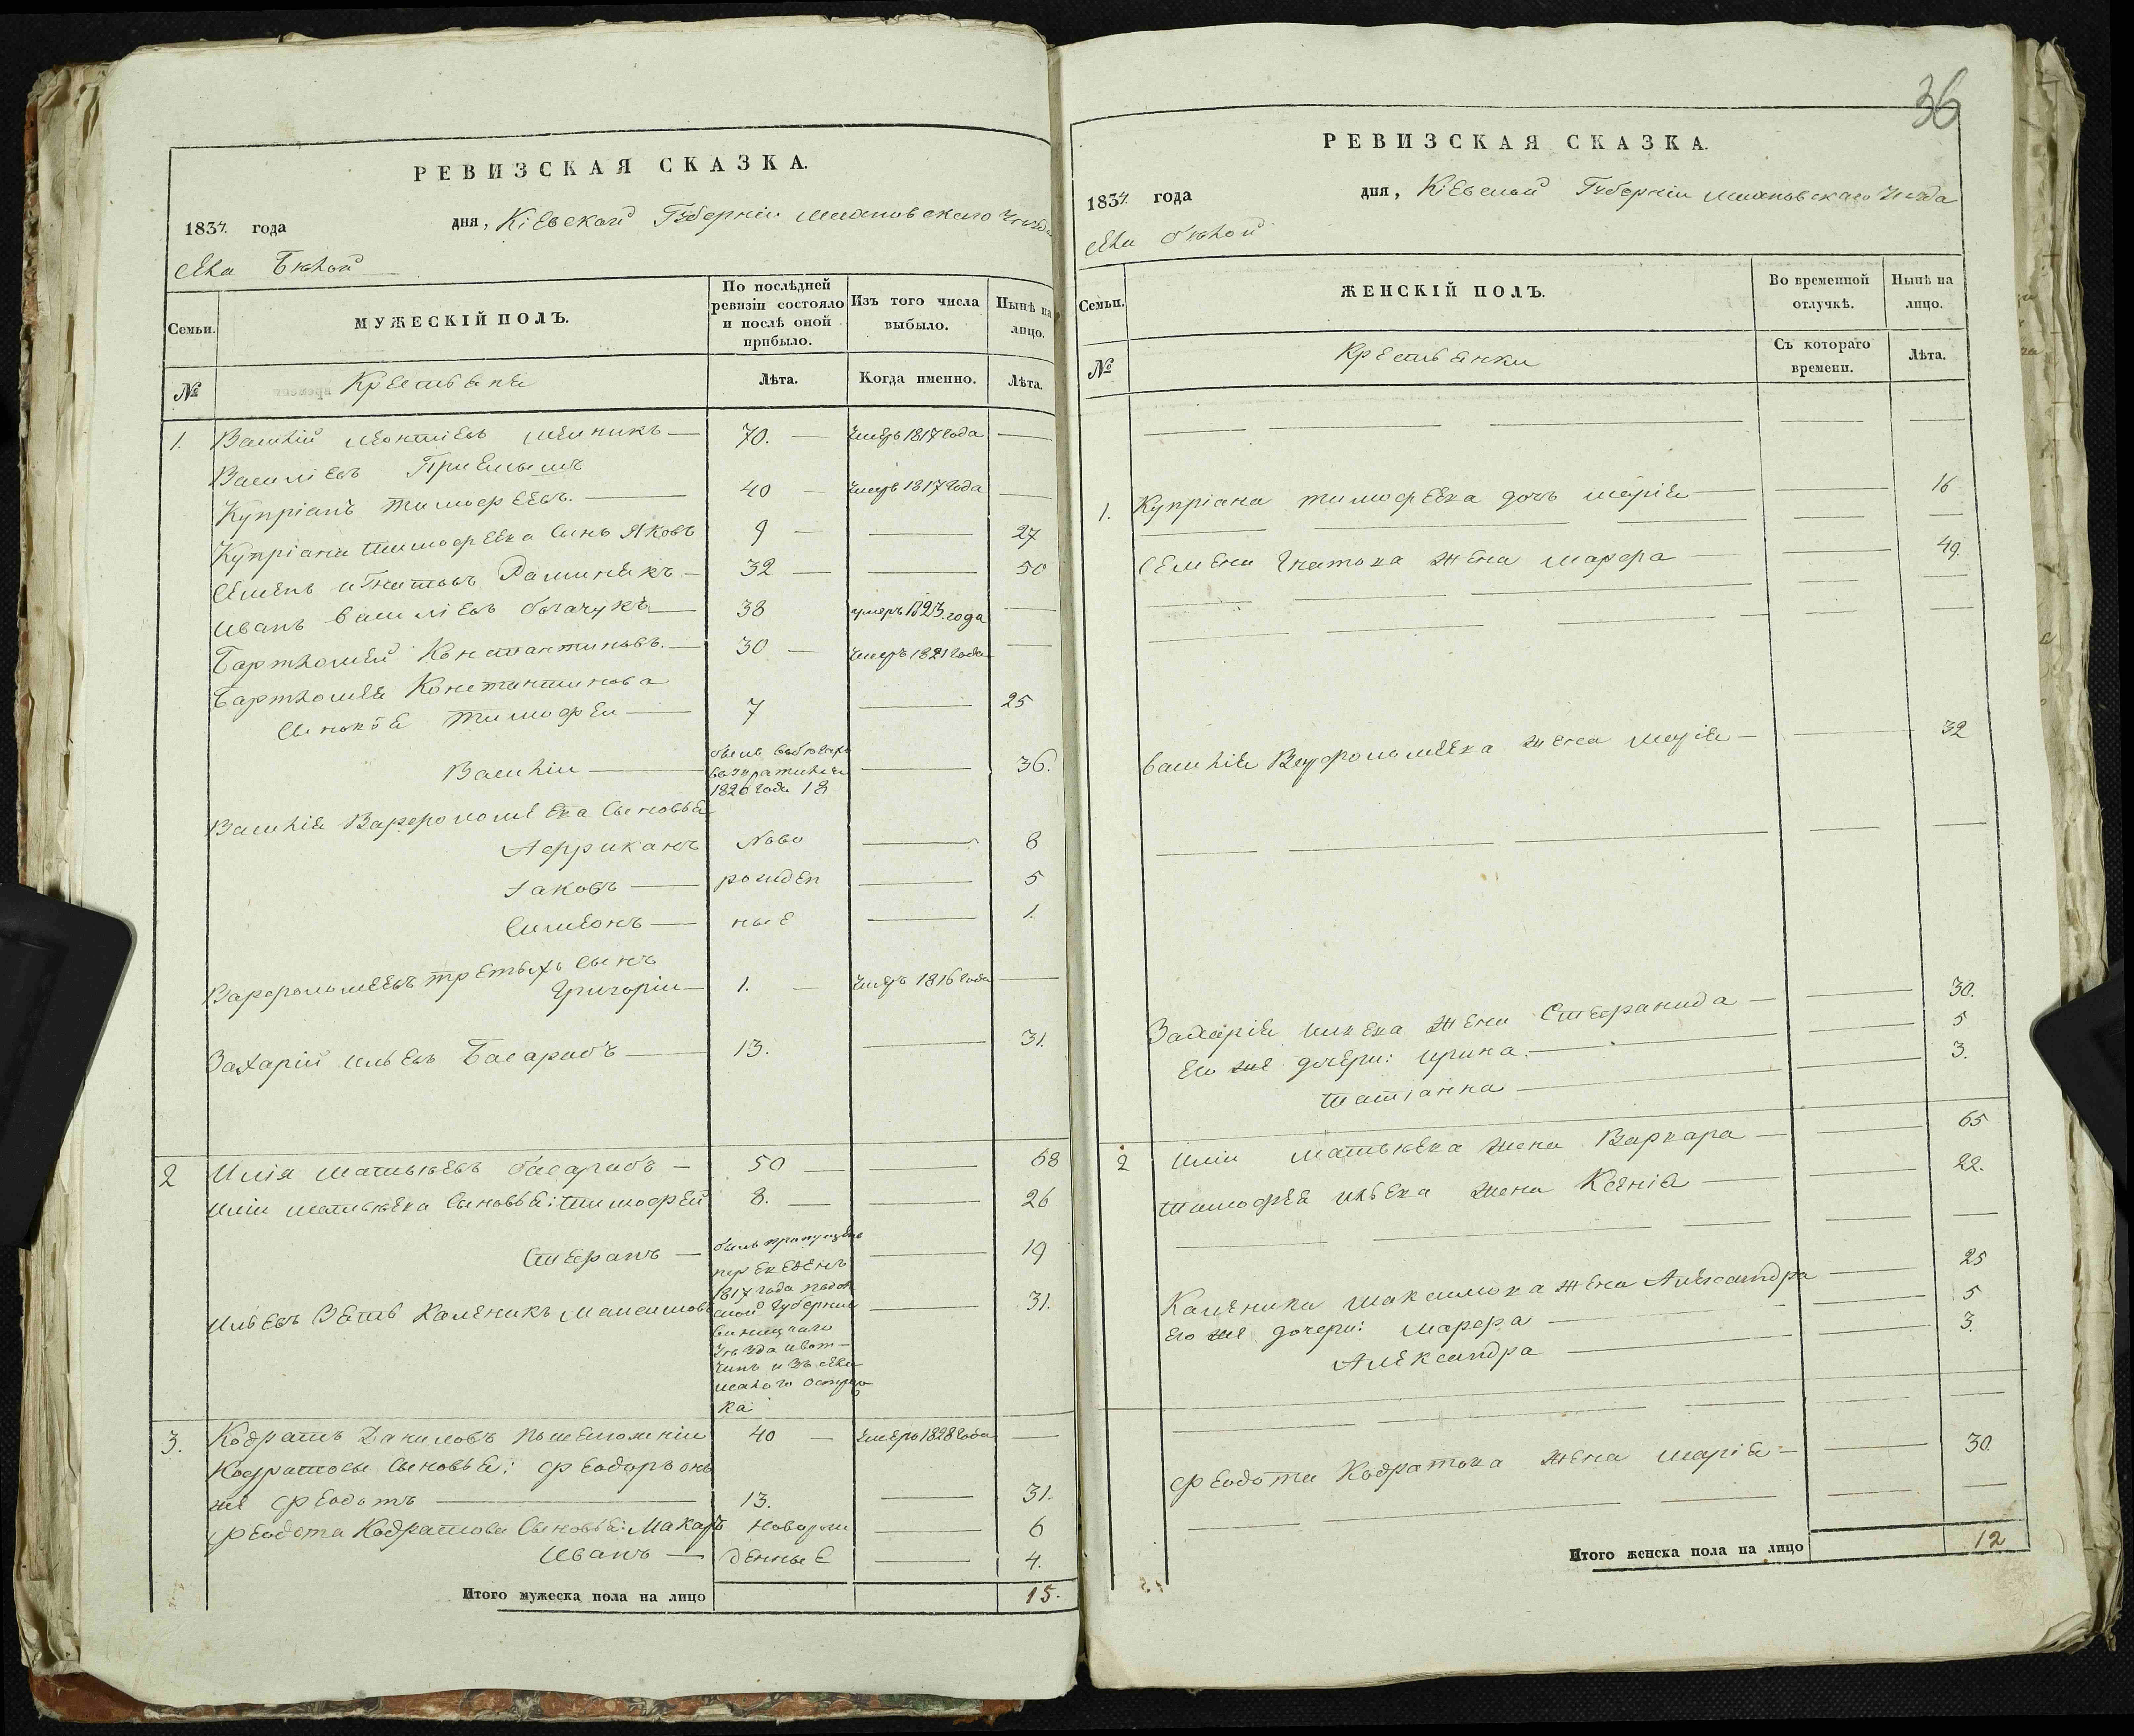 РЕВИЗСКАЯ СКАЗКА.
1834 года дня, Кіевской Губерніи Уѣзда
села Бѣлой
Семьи. МУЖЕСКІЙ ПОЛЪ. По послѣдней ревизіи состояло и послѣ оной прибыло. Изъ того числа выбыло. Нынѣ на лицо.
№ Крестьяне Лѣта. Когда именно. Лѣта.
1. Василій Леонтіевъ Мѣлникъ — 70. — Умеръ 1817 года —
Василіевъ Приемышъ
Купріанъ Тимофеевъ. — 40 — Умеръ 1817 года —
Купріана Тимофеева Сынъ Яковъ 9 — — 27
Семенъ Игнатовъ — 32 — — 50
Иванъ Василіевъ — 38 умеръ 1823. года —
Бартломей Константиновъ. — 30 — Умеръ 1821 года —
Бартломея Константинова
Тимофеи — 7 — 25
Василіи — 1820 года 18 — 36.
Василія Варфоломеева Сыновья
Африканъ Ново — 8
Іаковъ — рожден — 5
Симеонъ — ные — 1.
Варфоломеевъ третьихъ Сынъ
Григоріи — 1. — Умеръ 1816 года —
Захарій Ильевъ Басарабъ — 13. — 31.
2 Илія Матвѣевъ Басарабъ — 50 — — 68
Иліи Матвѣева Сыновья: Тимофей 8. — — 26
Стефанъ — былъ пропущенъ — 19
Ильевъ Зять Каленикъ Максимовъ переведенъ 1817 года Подол ской Губерніи — 31.
Уѣзда
изъ села
Малого Остро
ка
3. Кодратъ Даниловъ 40 — Умеръ 1828 года —
Кодратовы Сыновья: Феодоръ онъ
же Феодотъ — 13. — 31.
Феодота Кодратова Сыновья: Макаръ Новорож — 6
Иванъ — денные — 4.
Итого мужеска пола на лицо 15.
36
РЕВИЗСКАЯ СКАЗКА.
1834 года дня, Кіевской Губерніи Уѣзда
села Бѣлой
Семьи. ЖЕНСКІЙ ПОЛЪ. Во временной отлучкѣ. Нынѣ на лицо.
№ Крестьянки Съ котораго времени. Лѣта.
1. Купріана Тимофеева дочь Марія — — 16
Семена Гнатова жена Марфа — — 49.
Василія Варфоломеева жена Марія — — 32
Захарія Ильева жена Стефанида — — 30.
Его же дочери: Ирина. — 5
Татіанна — — 3.
2 Иліи Матвѣева жена Варвара — — 65
Тимофея Ильева жена Ксенія — — 22.
Каленика Максимова жена Александра — 25
Его же дочери: Марфа — — 5
Александра — — 3.
Феодота Кодратова жена Марія — — 30
Итого женска пола на лицо 12